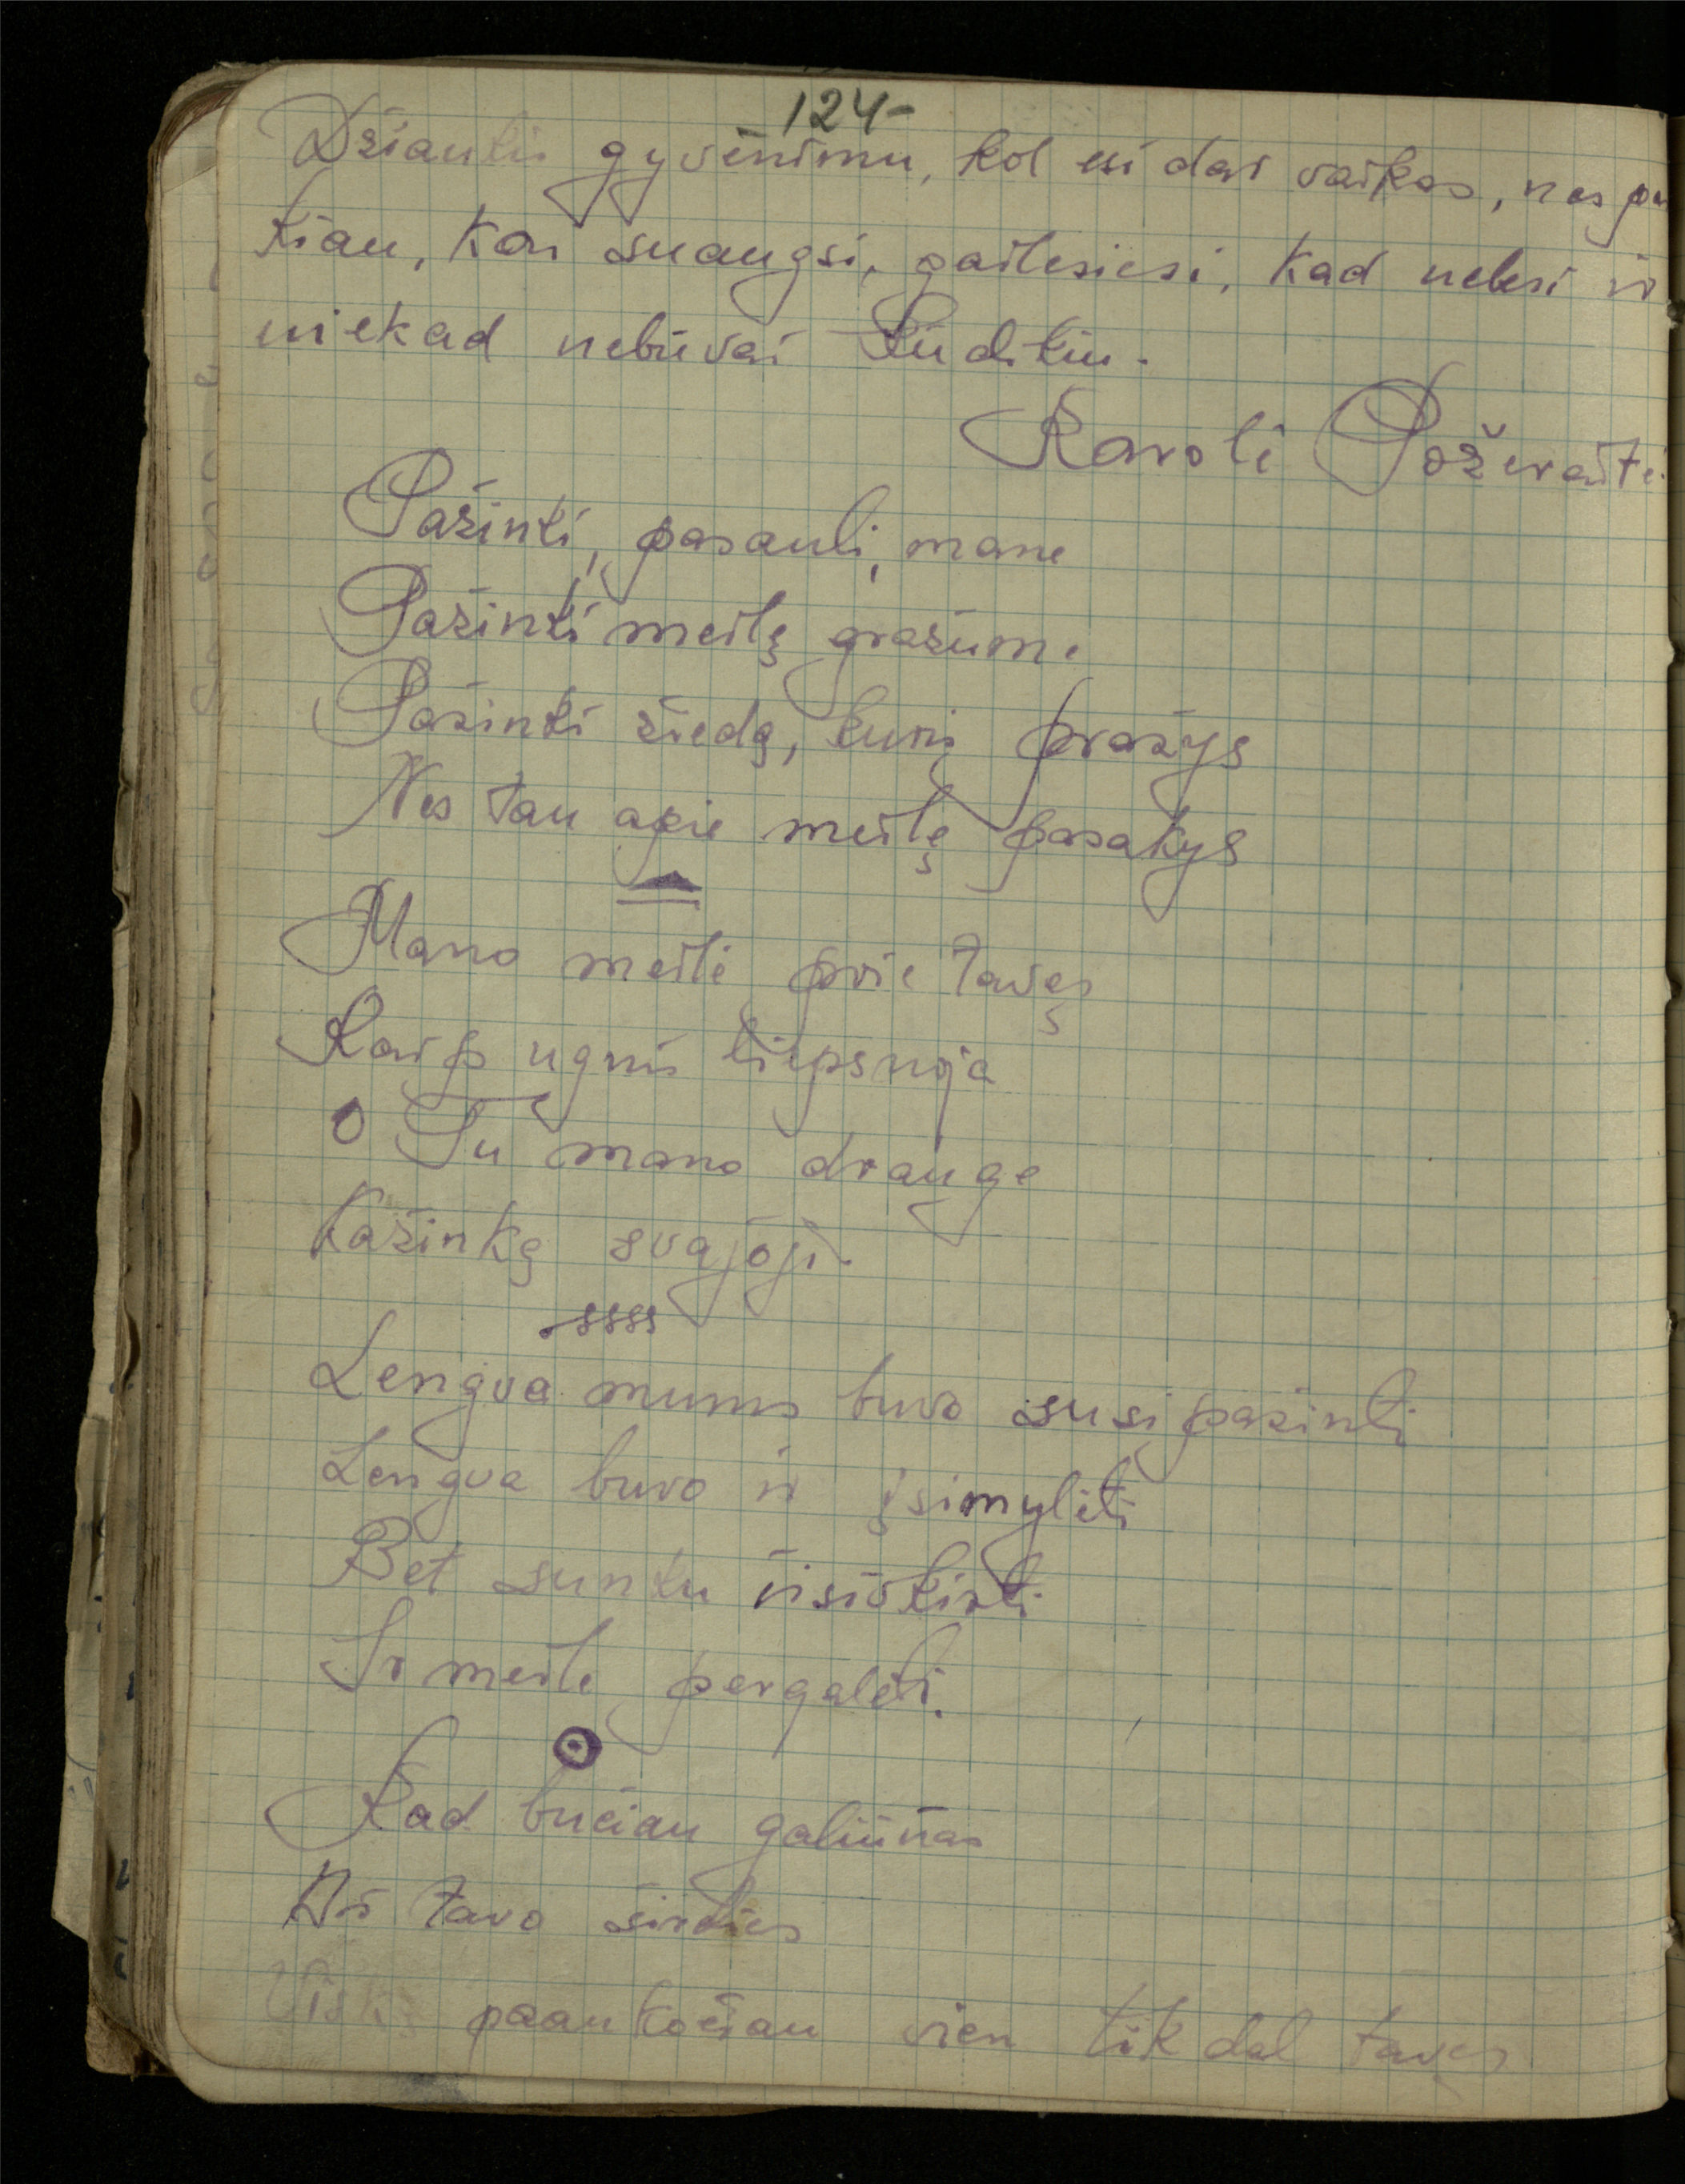 124-
Džiaukis gyvenimu, kol esi dar vaikas, nes pas
kiau, kai suaugsi, gailesiesi, kad nebesi ir
niekad nebūvai kūdikiu.
Karolė Požeraitė
Pažinti, pasauli, mane
Pažinti meilę gražumė
Pažinti žiedą, kurį prašys
Nes tau apie meilę pasakys
Mano meilė prie tavęs
Kaip ugnis liepsnoja
O Tu mano drauge
Kažinką svajoji.
Lengva mums buvo susipažinti
Lengva buvo ir įsimylėti
Bet sunku išsiskirti
Ir meilę pergalėti.
Kad bučiau galiūnas
Ant tavo širdies
Viską paaukočiau vien tik dėl tavęs